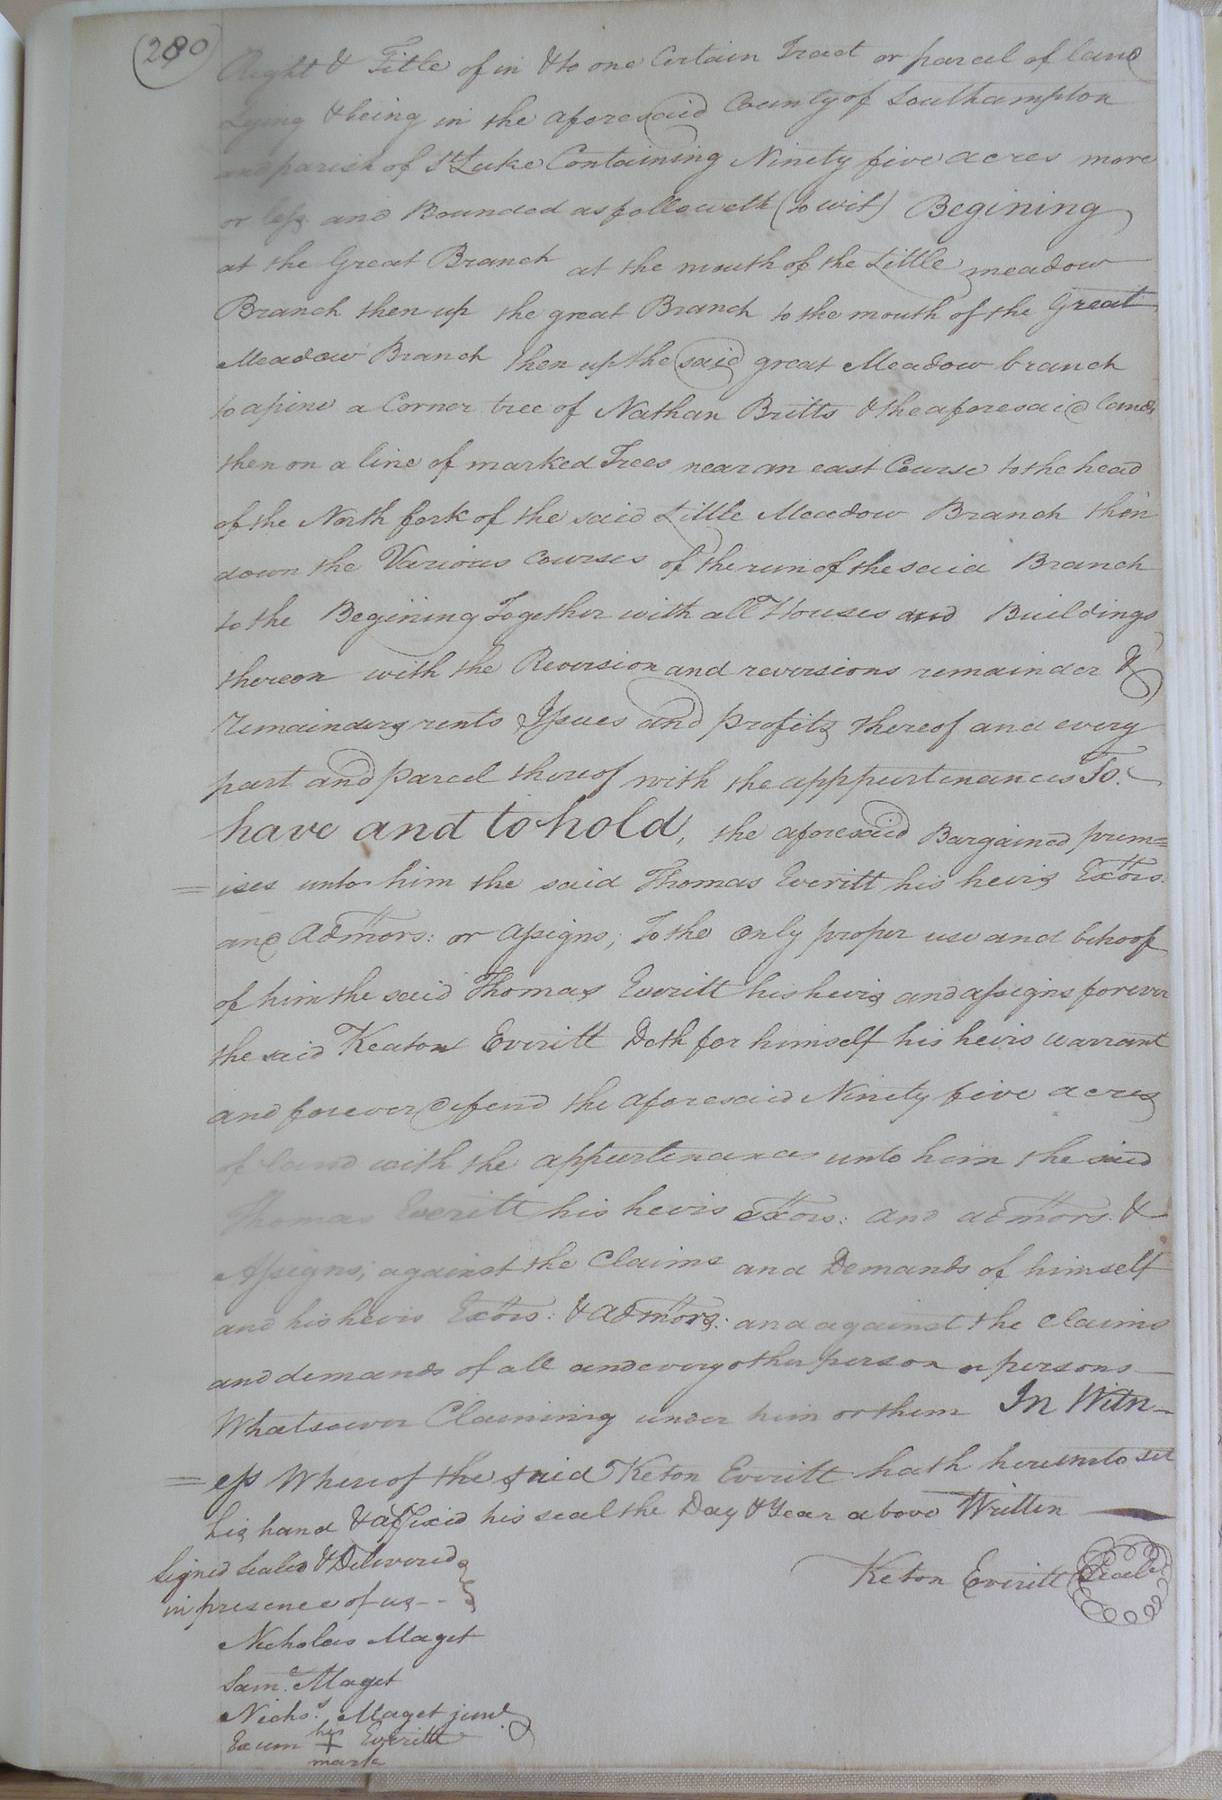 (280)
Right & Title of in & to one Certain Tract or parcel of land
Lying & being in the aforesaid County of Southampton
and parish of St Luke Containing Ninety five acres more
or less and Bounded as followeth (to wit) Begining
at the Great Branch at the mouth of the Little meadow
Branch then up the great Branch to the mouth of the Great
Meadow Branch then up the said great Meadow branch
to a pine a Corner tree of Nathan Britts & the aforesaid Lands
then on a line of marked Trees near an east Course to the head
of the North fork of the said Little Meadow Branch then
down the Various Courses of the run of the said Branch
to the Begining Together with all Houses and Buildings
thereon with the Reversion and reversions remainder &
remainders rents Issues and profits thereof and every
part and parcel thereof with the apppurtenances To
have and to hold, the aforesaid Bargained prem=
=ises unto him the said Thomas Everitt his heirs Extors
and Admors: or Assigns; To the only proper use and behoof
of him the said Thomas Everitt his heirs and assigns forever
the said Keaton Everitt Doth for himself his heirs warrant
and forever defend the aforesaid Ninety five acres
of land with the appurtenances unto him the said
Thomas Everitt his heirs extors: and admors. &
Assigns; against the Claims and Demands of himself
and his heirs Extors: & admors: and against the Claims
and demands of all and every other person or persons
Whatsoever Claiming under him or them In Witn-
=ess Whereof the said Keton Everitt hath hereunto set
his hand & affixed his seal the Day & Year above Written
Signed Sealed & Delivered
in presence of us--
Keton Everitt Seal
Nicholas Maget
Saml. Maget
Nichos. Maget junr.
Exum his + mark Everitt